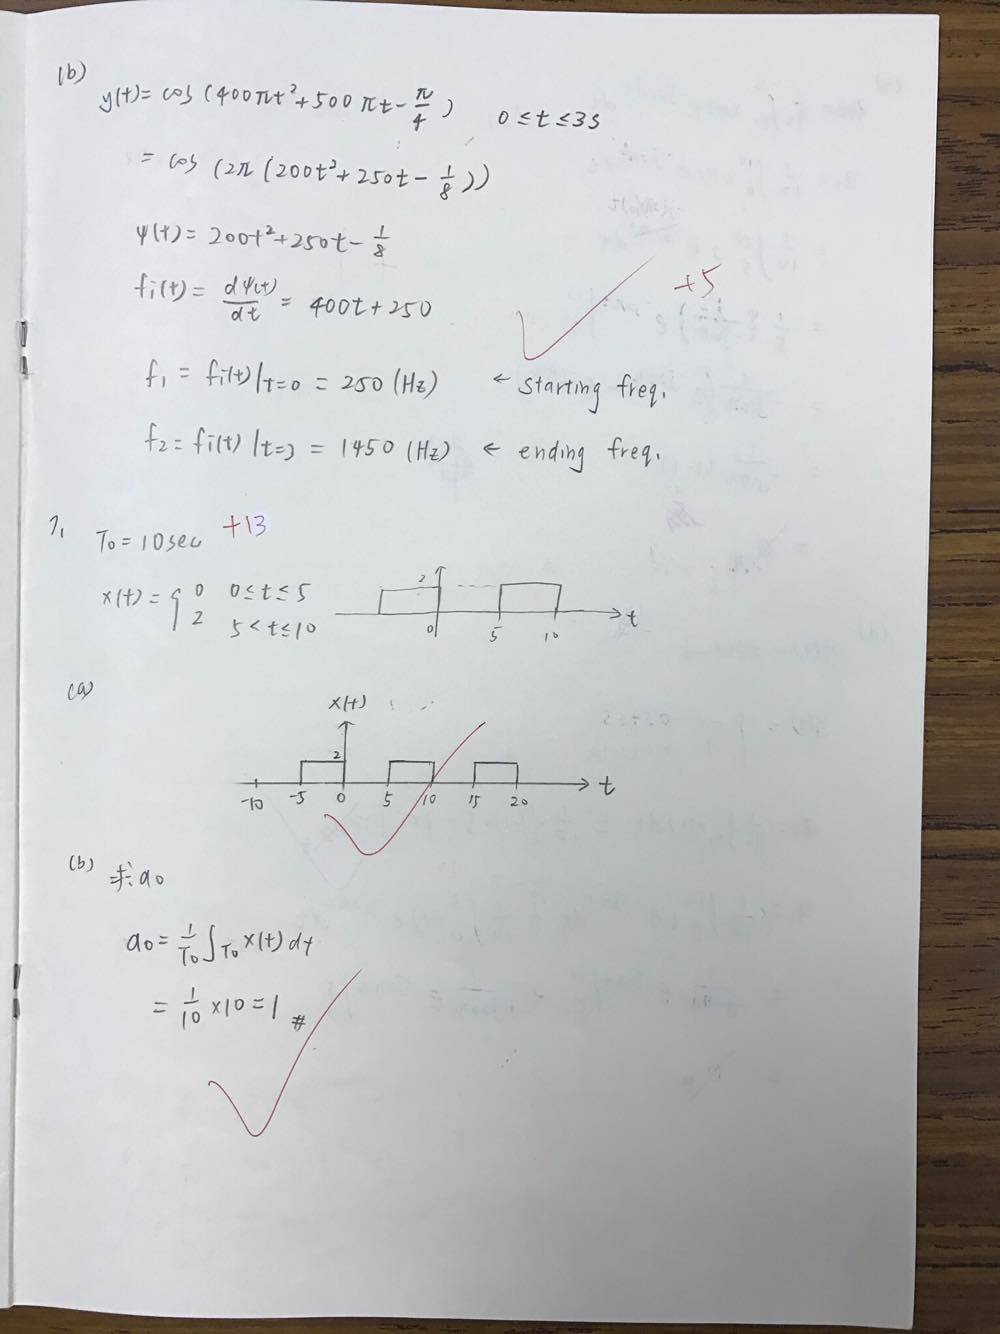 (b)
y(t) = cos (400πt² + 500πt - π/4) 0 ≤ t ≤ 3s
= cos (2π (200t² + 250t - 1/8))
ψ(t) = 200t² + 250t - 1/8
fi(t) = dψ(t)/dt = 400t + 250
+5
f₁ = fi(t)|t=0 = 250 (Hz) ← starting freq.
f₂ = fi(t)|t=3 = 1450 (Hz) ← ending freq.
7. T₀ = 10 sec +13
x(t) = { 0 0 ≤ t ≤ 5
2 5 < t ≤ 10
2
0 5 10 t
(a)
x(t)
2
-10 -5 0 5 10 15 20 t
(b) 求 a₀
a₀ = 1/T₀ ∫T₀ x(t) dt
= 1/10 × 10 = 1 #